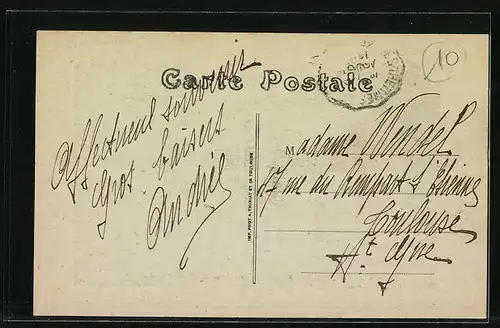 10
Carte Postale
Affectueux souvenir
Gros baisers
Andrée
Madame Wendel
17 rue du Rempart St Etienne
Toulouse
Hte Gne
IMP. PHOT A. THIRIAT ET CIE TOULOUSE